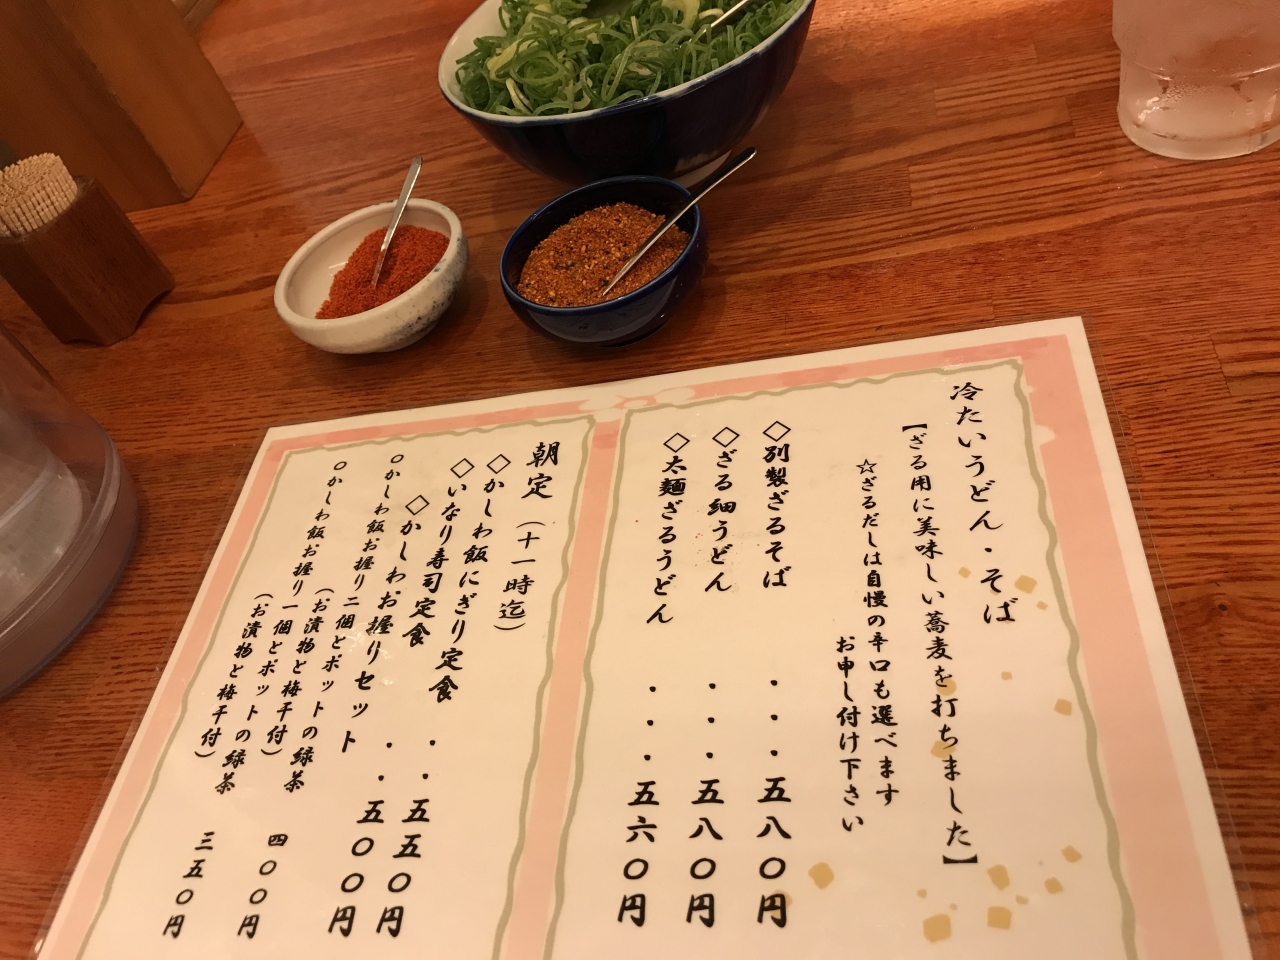 冷たいうどん・そば
【ざる用に美味しい蕎麦を打ちました】
☆ざるだしは自慢の辛口も選べます
お申し付け下さい
◇別製ざるそば ・・・五八〇円
◇ざる細うどん ・・・五八〇円
◇太麺ざるうどん ・・・五六〇円
朝定（十一時迄）
◇かしわ飯にぎり定食 ・・五五〇円
◇いなり寿司定食 ・・五〇〇円
◇かしわお握りセット
○かしわ飯お握り二個とポットの緑茶
（お漬物と梅干付） 四〇〇円
○かしわ飯お握り一個とポットの緑茶
（お漬物と梅干付） 三五〇円